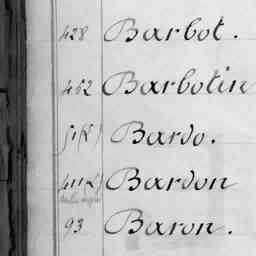 428 Barbot.
462 Barbotin
51(2) Bardo.
411(2) Bardon
93 Baron.